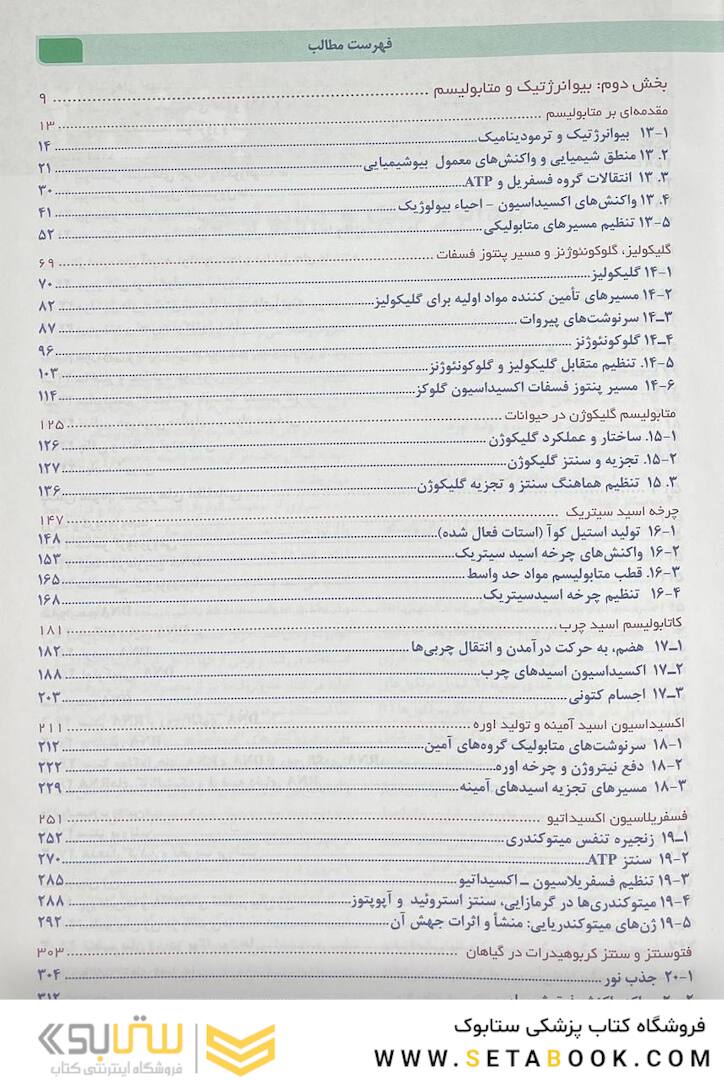 فهرست مطالب
بخش دوم: بیوانرژتیک و متابولیسم ۹
مقدمه‌ای بر متابولیسم ۱۳
۱۳-۱ بیوانرژتیک و ترمودینامیک ۱۴
۱۳.۲ منطق شیمیایی و واکنش‌های معمول بیوشیمیایی ۲۱
۱۳.۳ انتقالات گروه فسفریل و ATP ۳۰
۱۳.۴ واکنش‌های اکسیداسیون – احیاء بیولوژیک ۴۱
۱۳-۵ تنظیم مسیرهای متابولیکی ۵۲
گلیکولیز، گلوکونئوژنز و مسیر پنتوز فسفات ۶۹
۱۴-۱ گلیکولیز ۷۰
۱۴-۲ مسیرهای تأمین کننده مواد اولیه برای گلیکولیز ۸۲
۱۴ـ۳ سرنوشت‌های پیروات ۸۷
۱۴ـ۴ گلوکونئوژنز ۹۶
۱۴-۵. تنظیم متقابل گلیکولیز و گلوکونئوژنز ۱۰۳
۱۴-۶ مسیر پنتوز فسفات اکسیداسیون گلوکز ۱۱۴
متابولیسم گلیکوژن در حیوانات ۱۲۵
۱۵-۱. ساختار و عملکرد گلیکوژن ۱۲۶
۱۵-۲. تجزیه و سنتز گلیکوژن ۱۲۷
۱۵.۳ تنظیم هماهنگ سنتز و تجزیه گلیکوژن ۱۳۶
چرخه اسید سیتریک ۱۴۷
۱۶-۱ تولید استیل کوآ (استات فعال شده) ۱۴۸
۱۶-۲ واکنش‌های چرخه اسید سیتریک ۱۵۳
۱۶-۳. قطب متابولیسم مواد حد واسط ۱۶۵
۱۶-۴ تنظیم چرخه اسیدسیتریک ۱۶۸
کاتابولیسم اسید چرب ۱۸۱
۱۷ـ۱ هضم، به حرکت درآمدن و انتقال چربی‌ها ۱۸۲
۱۷ـ۲ اکسیداسیون اسیدهای چرب ۱۸۸
۱۷ـ۳ اجسام کتونی ۲۰۳
اکسیداسیون اسید آمینه و تولید اوره ۲۱۱
۱۸-۱ سرنوشت‌های متابولیک گروه‌های آمین ۲۱۲
۱۸-۲ دفع نیتروژن و چرخه اوره ۲۲۲
۱۸-۳ مسیرهای تجزیه اسیدهای آمینه ۲۲۹
فسفریلاسیون اکسیداتیو ۲۵۱
۱۹ـ۱ زنجیره تنفس میتوکندری ۲۵۲
۱۹-۲ سنتز ATP ۲۷۰
۱۹-۳ تنظیم فسفریلاسیون ـ اکسیداتیو ۲۸۵
۱۹-۴ میتوکندری‌ها در گرمازایی، سنتز استروئید و آپوپتوز ۲۸۸
۱۹-۵ ژن‌های میتوکندریایی: منشأ و اثرات جهش آن ۲۹۲
فتوسنتز و سنتز کربوهیدرات در گیاهان ۳۰۳
۲۰-۱ جذب نور ۳۰۴
فروشگاه کتاب پزشکی ستابوک
WWW.SETABOOK.COM
ستابوک
فروشگاه اینترنتی کتاب